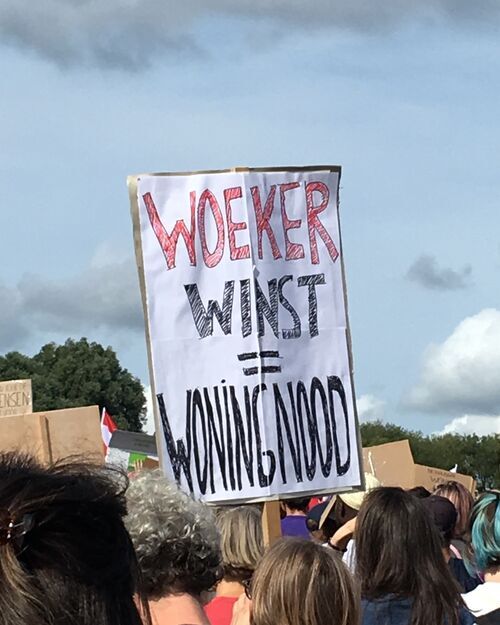 WOEKER
WINST
=
WONINGNOOD
ENSEN